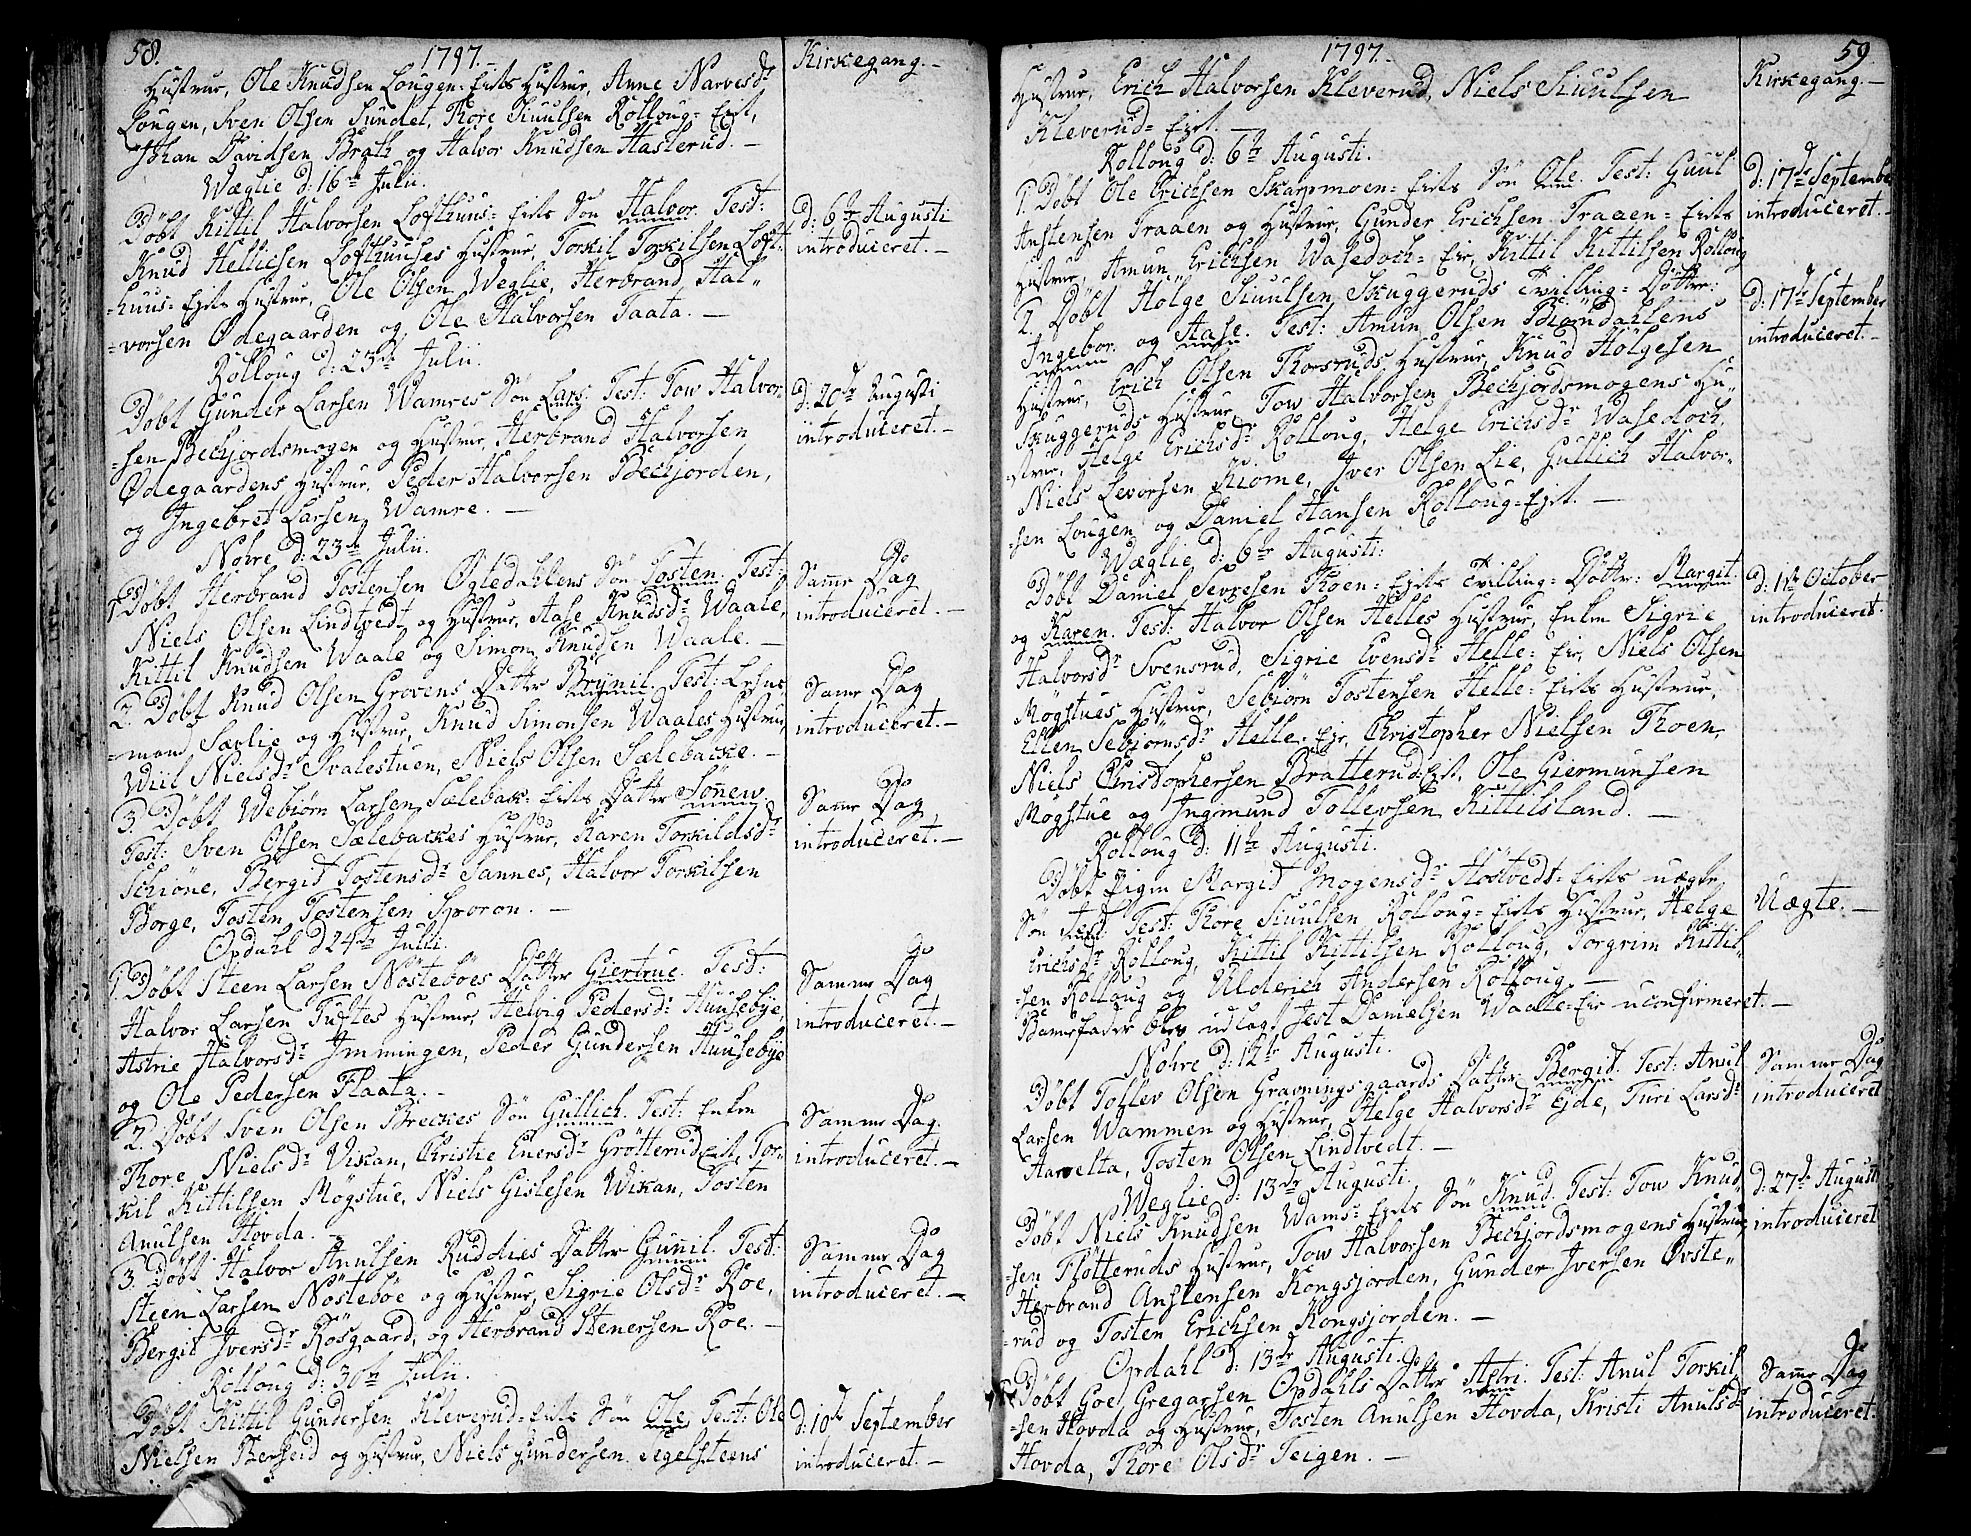 58.
1797.
Kirkegang.-
Hustrue, Ole Knudsen Lougen-Eiets Hustrue, Anne Narvesdr
Lougen, Sven Olsen Sundet, Thore Siuulsen Rolloug-Eiet,
Johan Davidsen Brath og Halvor Knudsen Hasterud.-
Wæglie d: 16de Julii.
Døbt Kittil Halvorsen Lofthuus-Eiets Søn Halvor. Test:
Knud Hellicsen Lofthuuses Hustrue, Torkil Torkilsen Loft-
-huus-Eiets Hustrue, Ole Olsen Weglie, Herbrand Hal-
-vorsen Ødegaarden og Ole Halvorsen Taata.-
d: 6te Augusti
introduceret.-
Rolloug d: 23de Julii.
Døbt Gunder Larsen Wamres Søn Lars. Test: Tow Halvor-
-sen Bechjordsmogen og Hustrue, Herbrand Halvorsen
Ødegaardens Hustrue, Peder Halvorsen Bechjorden,
og Ingebret Larsen Wamre.-
d: 20de Augusti
introduceret.-
Nohre d: 23de Julii.
1. Døbt Herbrand Tostensen Ogtedahlens Søn Tosten. Test:
Niels Olsen Lindtvedt og Hustrue, Aase Knudsdr Waale,
Kittil Knudsen Waale og Simon Knudsen Waale.-
Samme Dag
introduceret.-
2. Døbt Knud Olsen Grovens Datter Brynil. Test: Lehns-
-mand Sævlie og Hustrue, Knud Simonsen Waales Hustrue,
Wiil Nielsdr Svalestuen, Niels Olsen Sælebacke.-
Samme Dag
introduceret.-
3. Døbt Webiørn Larsen Sælebak-Eiets Datter Sønnew.
Test: Sven Olsen Sælebackes Hustrue, Karen Torkildsdr
Schiøne, Bergit Tostensdr Sannes, Halvor Torkilsen
Borge, Tosten Tostensen Sporon.-
Samme Dag
introduceret.-
Opdahl d 24de Julii.
1. Døbt Steen Larsen Nøstebøes Datter Giertrue. Test:
Halvor Larsen Tuftes Hustrue, Helvig Pedersdr Huusebye,
Astrie Halvorsdr Immingen, Peder Gundersen Huusebye
og Ole Pedersen Flaata.-
Samme Dag
introduceret.-
2. Døbt Sven Olsen Breckes Søn Gullich. Test: Enken
Thore Nielsdr Vikan, Christie Enersdr Grøtterud Eiet, Tor-
kil Kittilsen Mogstue, Niels Gislesen Wikan, Tosten
Anulsen Hovda.-
Samme Dag.
introduceret.-
3. Døbt Halvor Anulsen Ruddies Datter Gunil. Test:
Steen Larsen Nøstebøe og Hustrue, Sigrie Olsdr Roe,
Bergit Iversdr Rosgaard, og Herbrand Stenersen Roe.-
Samme Dag
introduceret.-
Rolloug d: 30te Julii.
Døbt Kittil Gundersen Kleverud-Eiets Søn Ole. Test: Ole
Nielsen Berseid og Hustrue, Niels Gundersen Segelsteens
d: 10de September
introduceret.-
1797.
59
Kirkegang.-
Hustrue, Erich Halvorsen Kleverud, Niels Siuulsen
Kleverud-Eiet.-
Rolloug d: 6te Augusti.
1. Døbt Ole Erichsen Skarpmoen-Eiets Søn Ole. Test: Guul
Anstensen Traaen og Hustrue, Gunder Erichsen Traaen-Eiets
Hustrue, Amun Erichsen Wasedoch-Eie, Kittil Kittilsen Rolloug
d: 17de September
introduceret.-
2. Døbt Holge Siuulsen Skuggeruds Tvilling-Døttre:
Ingebor og Aase. Test: Amun Olsen Biørndahlens
Hustrue, Erich Olsen Thorsruds Hustrue, Knud Holgesen
Skuggeruds Hustrue, Tow Halvorsen Bechjordsmogens Hu-
-strue, Helge Erichsdr Rolloug, Helge Erichsdr Wasedoch,
Niels Levorsen Kiome, Iver Olsen Lie, Gullich Halvor-
-sen Lougen og Daniel Hansen Rolloug-Eiet.-
d: 17de September
introduceret.-
Wæglie d: 6te Augusti:
Døbt Daniel Sevresen Thoen-Eiets Tvilling-Døttre: Margit
og Karen. Test: Halvor Olsen Helles Hustrue, Enken Sigrie
Halvorsdr Svensrud, Sigrie Evensdr Helle-Eie, Niels Olsen
Mogstues Hustrue, Sebiørn Tostensen Helle-Eiets Hustrue,
Ellen Sebiørnsdr Helle-Eie, Christopher Nielsen Thoen,
Niels Christophersen Bratterud-Eiet, Ole Giermunsen
Mogstue og Ingmund Tollevsen Kittilsland.-
d: 1ste October
introduceret.
Rolloug d: 11te Augusti.
Døbt Pigen Margit Mogensdr Hostvedt-Eiets uægte
Søn. Test: Thore Siuulsen Rolloug-Eiets Hustrue, Helge
Erichsdr Rolloug, Kittil Kittilsen Rolloug, Torgrim Kittil-
-sen Rolloug og Ulderich Andersen Rolloug.-
Barnefader blev udlagt Jest Danielsen Waale-Eie uconfirmeret.-
Uægte.-
Nohre d: 12te Augusti.
Døbt Tollev Olsen Gravningsgaards Datter Bergit. Test: Anul
Larsen Wammen og Hustrue, Helge Halvorsdr Eide, Turi Larsdr
Harvelta, Tosten Olsen Lindtvedt.-
Samme Dag
introduceret
Weglie d: 13de Augusti.
Døbt Niels Knudsen Wams-Eiets Søn Knud. Test: Tow Knud-
-sen Flotteruds Hustrue, Tow Halvorsen Bechjordsmogens Hustrue,
Herbrand Anstensen Kongsjorden, Gunder Iversen Øvste-
-rud og Tosten Erichsen Kongsjorden.-
d: 27de Augusti
introduceret
Opdahl d: 13de Augusti.
Døbt Goe Gregarsen Opdahls Datter Astri. Test: Anul Torkil-
-sen Hovda og Hustrue, Tosten Anulsen Hovda, Kristi Anulsdr
Hovda, Thore Olsdr Teigen.-
Samme Dag
introduceret.